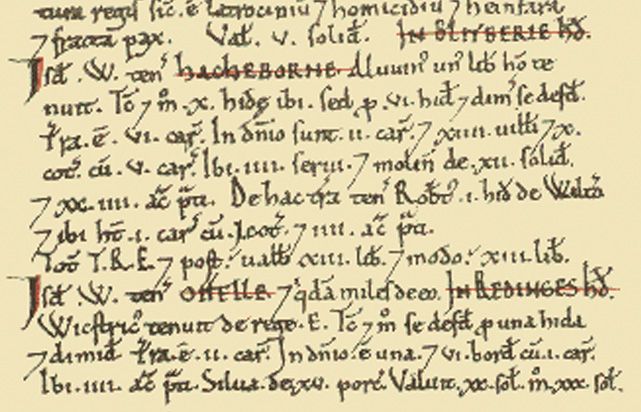 tura regis sic.ē latrociniū ⁊ homicidiū ⁊ heinfara
⁊ fracta pax. Val. v. solid. IN BLITBERIE HD̄.
Isd̄.W. ten' HACHEBORNE. Aluuin' un' lib hō te
nuit. Tc̄ ⁊ m̊.x. hidę ibi. sed p.vi. hid ⁊ dim' se defd̄.
Tr̄a.ē.vi. car̄. In dn̄io sunt.ii. car̄. ⁊ xiiii. uilłi ⁊ x.
cot̄. cū.v. car̄. Ibi.iiii. serui. ⁊ molin̄ de.xii. solid̄.
⁊ xx.iiii. ac̄ p̄ti. De hac tr̄a ten' Robt̄'.i. hid̄ de Walt̄o
⁊ ibi ht̄.i. car̄ cū.i.cot̄. ⁊ iiii. ac̄ p̄ti.
Tot̄ T.R.E. ⁊ post: ualb̄ xiii. lib. ⁊ modo: xiii. lib.
Isd̄.W. ten' OFFELLE. ⁊ qdā miles de eo. IN REDINGES HD̄.
Wicstric' tenuit de rege.E. Tc̄ ⁊ m̊ se defd̄ p una hida
⁊ dimid̄. Tr̄a.ē.ii. car̄. In dn̄io.ē una. ⁊ vi. bord̄ cū.i. car̄.
Ibi.iiii. ac̄ p̄ti. Silua. de.xv. porc̄. Valuit.xx.sol. m̊.xxx. sol.